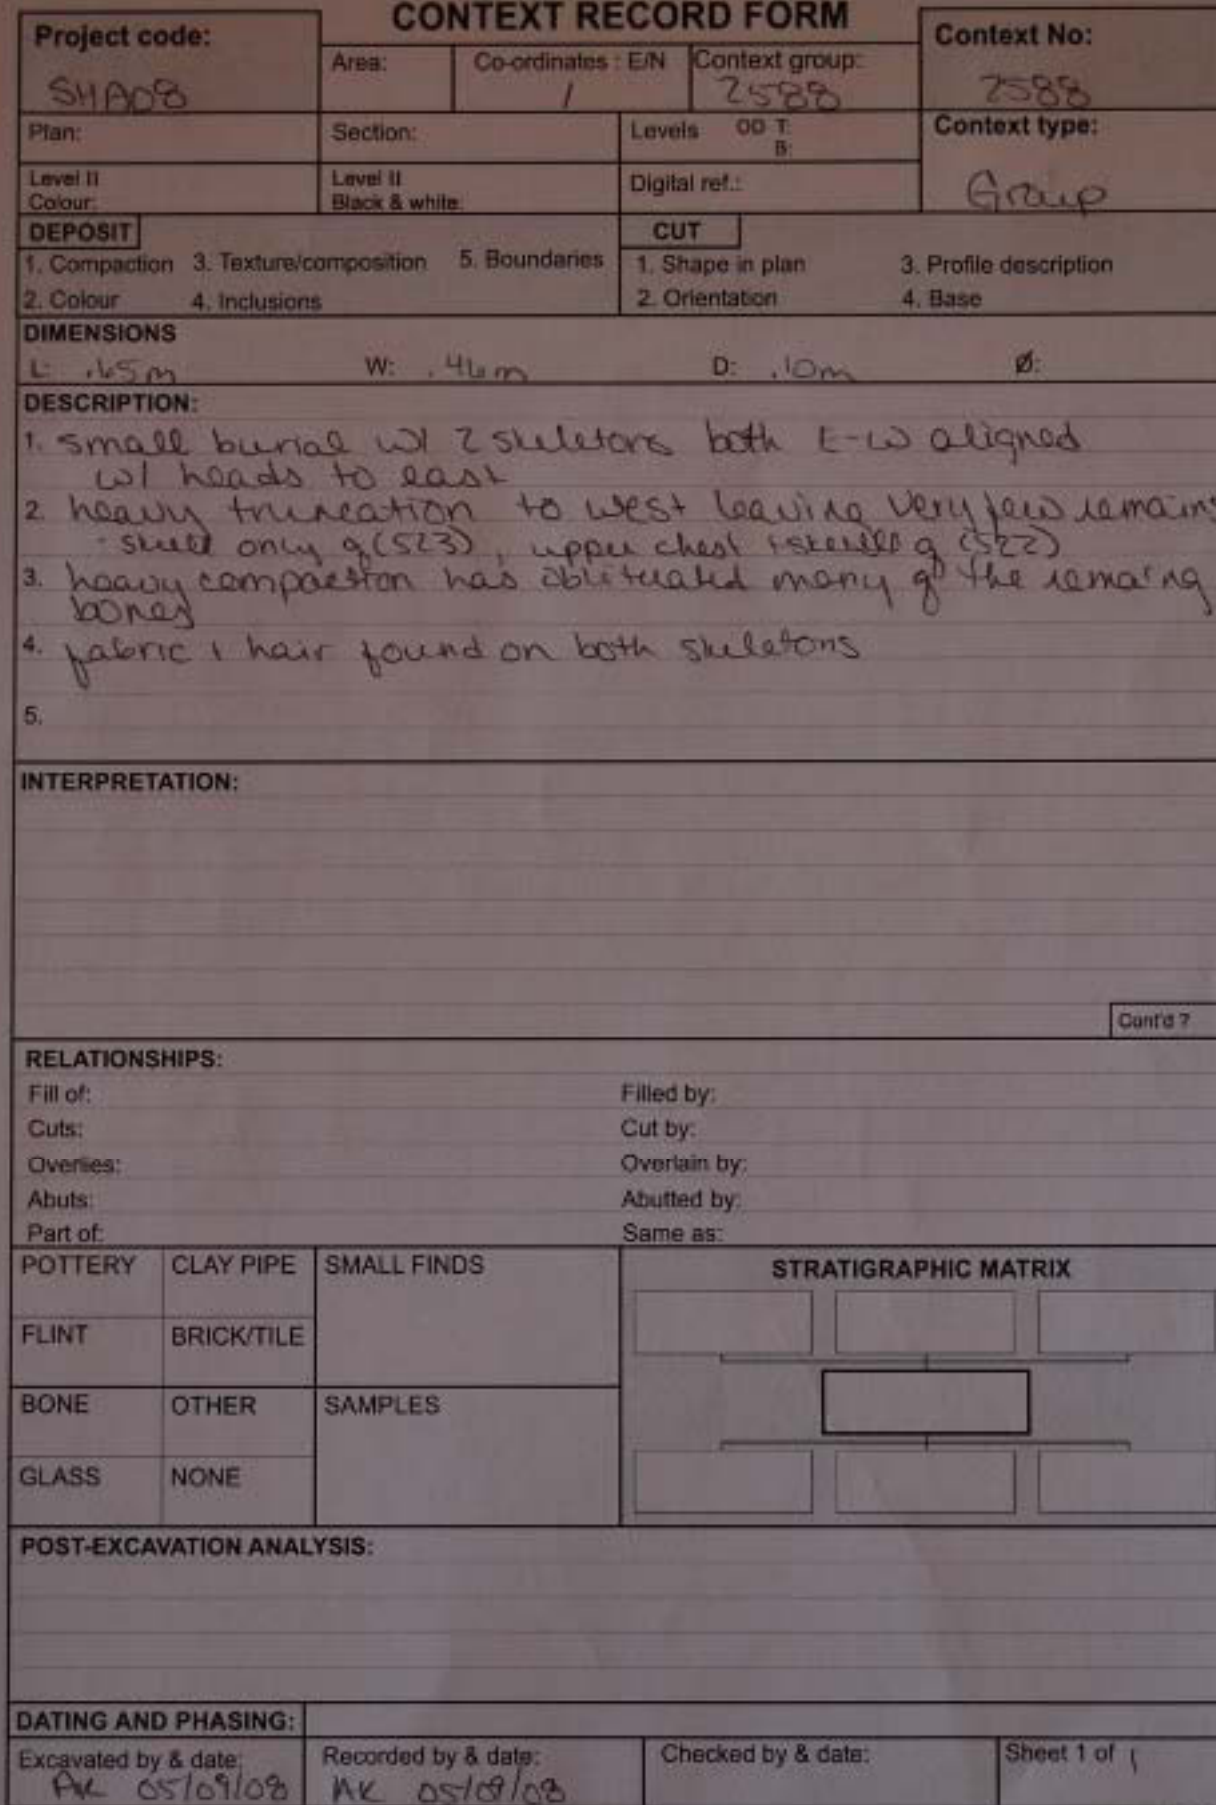 CONTEXT RECORD FORM
Project code:
SHA08
Area:
Co-ordinates : E/N
/
Context group:
2588
Context No:
2588
Plan:
Section:
Levels OD T:
B:
Context type:
Group
Level II
Colour:
Level II
Black & white:
Digital ref.:
DEPOSIT
1. Compaction 3. Texture/composition 5. Boundaries
2. Colour 4. Inclusions
CUT
1. Shape in plan 3. Profile description
2. Orientation 4. Base
DIMENSIONS
L: .65m W: .46m D: .10m Ø:
DESCRIPTION:
1. small burial w/ 2 skeletons both E-W aligned
w/ heads to east
2. heavy truncation to west leaving very few remains
- skull only of (523), upper chest + skull of (522)
3. heavy compaction has obliterated many of the remaing
bones
4. fabric + hair found on both skeletons
5.
INTERPRETATION:
Cont'd ?
RELATIONSHIPS:
Fill of: Filled by:
Cuts: Cut by:
Overlies: Overlain by:
Abuts: Abutted by:
Part of: Same as:
POTTERY CLAY PIPE SMALL FINDS
FLINT BRICK/TILE
BONE OTHER SAMPLES
GLASS NONE
STRATIGRAPHIC MATRIX
POST-EXCAVATION ANALYSIS:
DATING AND PHASING:
Excavated by & date:
AK 05/09/08
Recorded by & date:
AK 05/09/08
Checked by & date:
Sheet 1 of 1